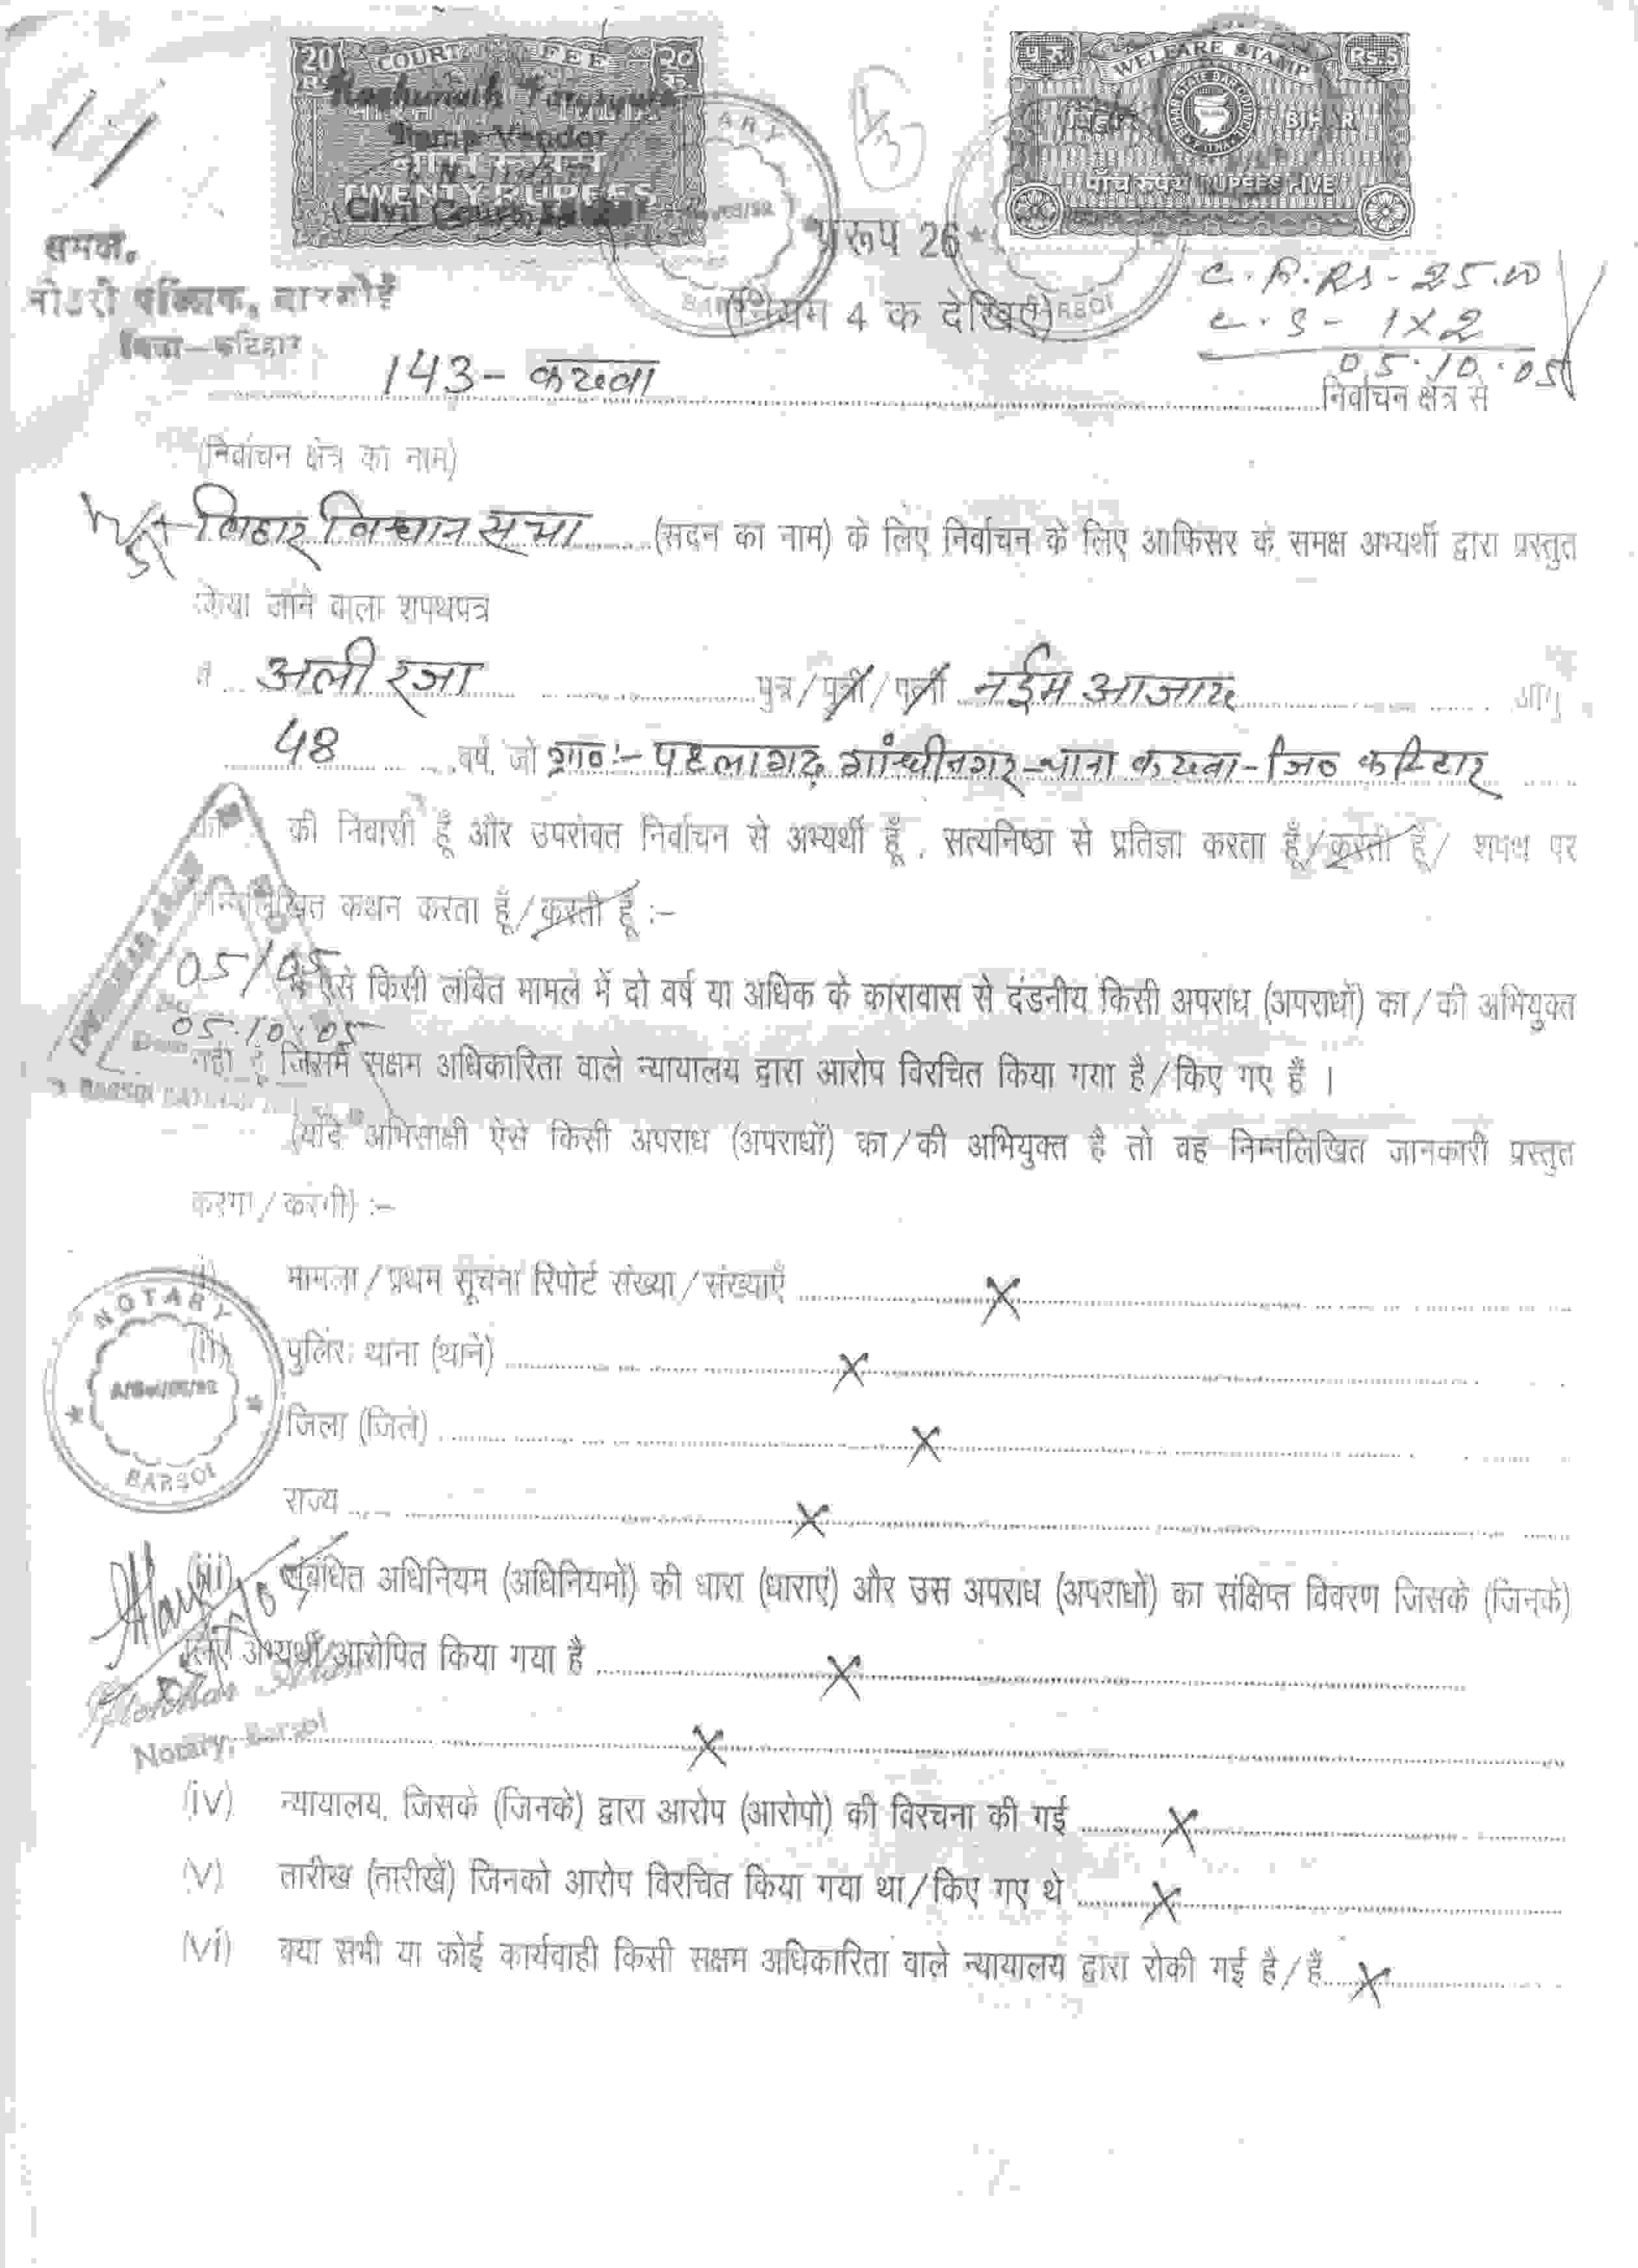 20 COURT FEE २०
Stamp Vendor
TWENTY RUPEES
Civil Court
WELFARE STAMP
५ रु Rs 5
BIHAR STATE BAR COUNCIL
बिहार BIHAR
पाँच रुपये RUPEES FIVE
समक्ष,
नोटरी पब्लिक, बारसोई
जिला-कटिहार
प्ररूप 26
(नियम 4 क देखिए)
C.F. Rs - 25.00
C.S - 1X2
05.10.05
143- कदवा निर्वाचन क्षेत्र से
(निर्वाचन क्षेत्र का नाम)
बिहार विधान सभा (सदन का नाम) के लिए निर्वाचन के लिए आफिसर के समक्ष अभ्यर्थी द्वारा प्रस्तुत
किया जाने वाला शपथपत्र
अली रजा पुत्र/पुत्री/पत्नी नईम आजाद आयु
48 वर्ष, जो ग्रा०:- पहलागढ़ गांधीनगर-थाना कदवा-जि० कटिहार
की निवासी हूँ और उपरोक्त निर्वाचन से अभ्यर्थी हूँ, सत्यनिष्ठा से प्रतिज्ञा करता हूँ/करती हूँ/ शपथ पर
निम्नलिखित कथन करता हूँ/करती हूँ :-
05/05
मैं ऐसे किसी लंबित मामले में दो वर्ष या अधिक के कारावास से दंडनीय किसी अपराध (अपराधों) का/की अभियुक्त
05.10.05
नहीं हूँ जिसमें सक्षम अधिकारिता वाले न्यायालय द्वारा आरोप विरचित किया गया है/किए गए हैं ।
BARSOI
(यदि अभिसाक्षी ऐसे किसी अपराध (अपराधों) का/की अभियुक्त है तो वह निम्नलिखित जानकारी प्रस्तुत
करेगा/करेगी) :-
(i) मामला/प्रथम सूचना रिपोर्ट संख्या/संख्याएँ X
NOTARY
(ii) पुलिस थाना (थाने) X
जिला (जिले) X
BARSOI
राज्य X
(iii) संबंधित अधिनियम (अधिनियमों) की धारा (धाराएं) और उस अपराध (अपराधों) का संक्षिप्त विवरण जिसके (जिनके)
लिए अभ्यर्थी आरोपित किया गया है X
Notary, Barsoi X
(iv) न्यायालय, जिसके (जिनके) द्वारा आरोप (आरोपो) की विरचना की गई X
(v) तारीख (तारीखें) जिनको आरोप विरचित किया गया था/किए गए थे X
(vi) क्या सभी या कोई कार्यवाही किसी सक्षम अधिकारिता वाले न्यायालय द्वारा रोकी गई है/हैं X